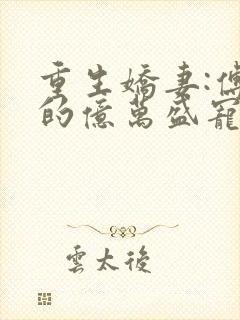 重生嬌妻:
的億萬盛寵
雲太後